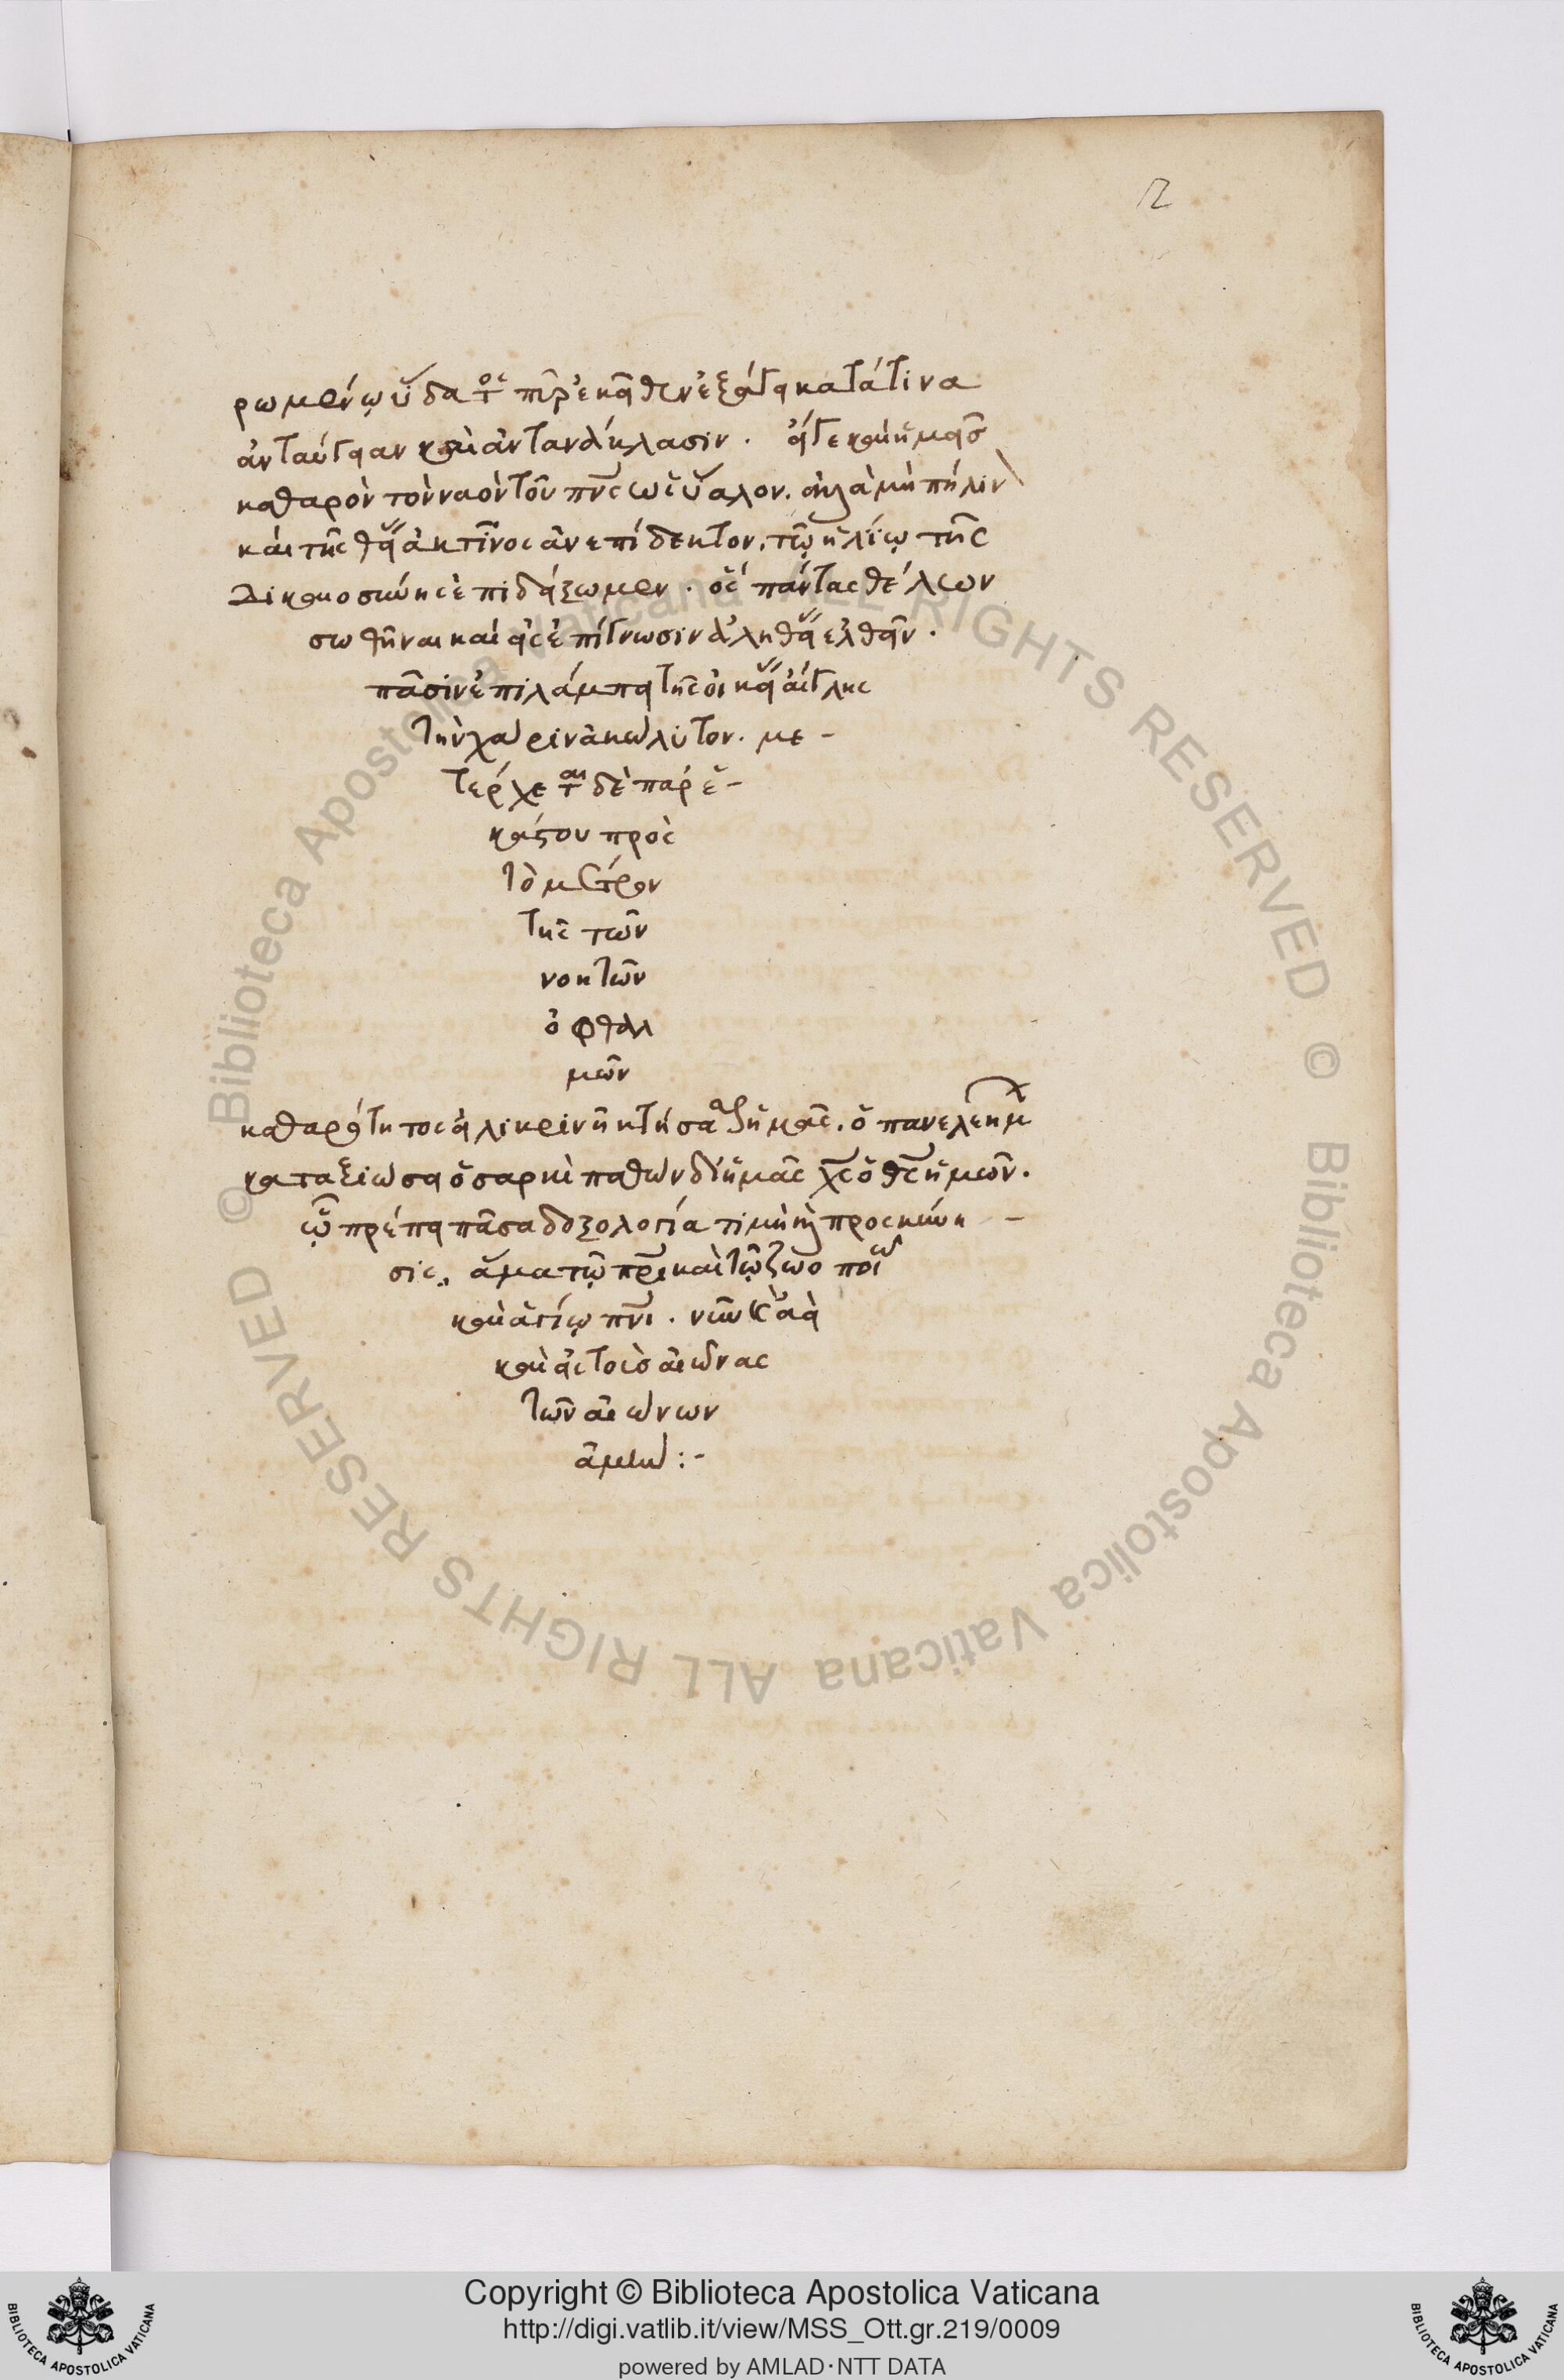 2
ρωμένω ὕδατος πῦρ ἐκεῖθεν ἐξάγει κατά τινα
ἀνταύγειαν καὶ ἀντανάκλασιν. εἴγε καὶ ἡμεῖς
καθαρὸν τὸν ναὸν τοῦ πνς ὡς ὕαλον. ἀλλὰ μὴ πήλινον
καὶ τῆς θείας ἀκτῖνος ἀνεπίδεκτον, τῶ ἡλίω τῆς
Δικαιοσύνης ἐπιδείξωμεν. ὃς πάντας θέλων
σωθῆναι καὶ εἰς ἐπίγνωσιν ἀληθείας ἐλθεῖν.
πᾶσιν ἐπιλάμπει τῆς οἰκείας αἴγλης
τὴν χάριν ἀκωλύτον. με-
τέρχεται δὲ παρ' ἑ-
κάστου πρὸς
τὸ μέτρον
τῆς τῶν
νοητῶν
ὀφθαλ
μῶν
καθαρότητος εἰλικρινῆ κτήσασθαι ἡμᾶς. ὁ πανελεήμων
καταξιώσαι ὁ σαρκὶ παθὼν δι' ἡμᾶς χς ὁ θς ἡμῶν.
ὧ πρέπει πᾶσα δοξολογία τιμὴ καὶ προσκύνη -
σις,, ἅμα τῶ πρι καὶ τῶ ζωοποιῶ
καὶ ἁγίω πνι. νῦν καὶ ἀεὶ
καὶ εἰς τοὺς αἰῶνας
τῶν αἰώνων
ἀμήν :-
© Biblioteca Apostolica Vaticana ALL RIGHTS RESERVED © Biblioteca Apostolica Vaticana ALL RIGHTS RESERVED
Copyright © Biblioteca Apostolica Vaticana
http://digi.vatlib.it/view/MSS_Ott.gr.219/0009
powered by AMLAD・NTT DATA
BIBLIOTECA APOSTOLICA VATICANA
BIBLIOTECA APOSTOLICA VATICANA